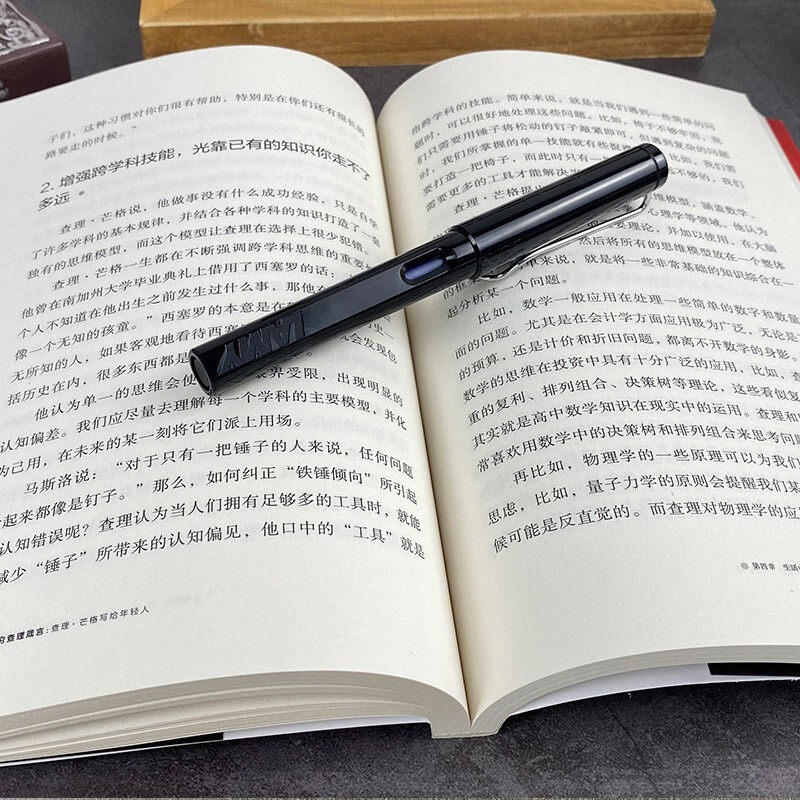 子们，这种习惯对你们很有帮助，特别是在你们还有很长的
路要走的时候。”
2. 增强跨学科技能，光靠已有的知识你走不了
多远
查理·芒格说，他做事没有什么成功经验，只是自学
了许多学科的基本规律，并结合各种学科的知识打造了一套
独有的思维模型，而这个模型让查理在选择上很少犯错。
查理·芒格一生都在不断强调跨学科思维的重要性
他曾在南加州大学毕业典礼上借用了西塞罗的话：
个人不知道在他出生之前发生过什么事，那他在
像一个无知的孩童。”西塞罗的本意是在
无所知的人，如果客观地看待西塞
就会发现包
括历史在内，很多东西都是
他认为单一的思维会使
眼界受限，出现明显的
认知偏差。我们应尽量去理解每一个学科的主要模型，并化
为己用，在未来的某一刻将它们派上用场。
马斯洛说：“对于只有一把锤子的人来说，任何问题
起来都像是钉子。”那么，如何纠正“铁锤倾向”所引起
认知错误呢？查理认为当人们拥有足够多的工具时，就能
减少“锤子”所带来的认知偏见，他口中的“工具”就是
查理箴言：查理·芒格写给年轻人
LAMY
指跨学科的技能。简单来说，就是当我们遇到一些简单的问
题时，可以很好地处理这些问题。比如，椅子不够牢固，我
们只需要用锤子将松动的钉子敲紧即可，但遇到复杂的问题
时，我们所掌握的单一技能就有些捉
比如，我们需
要打造一把椅子，而此时只有一
不够的，我们
需要更多的工具才能解决
查理·芒格提出
思维模型，涵盖数学、
心理学等领域。他认为
要理论，并加以使用，在大脑
然后将所有的思维模型放在一个整体
的框
单来说，就是将一些非常基础的知识综合在一
起分析某一个问题。
比如，数学一般应用在处理一些简单的数字和数量
面的问题。尤其是在会计学方面应用极为广泛，无论是
的预算，还是计价和折旧问题，都离不开数学的身影。
数学的思维在投资中具有十分广泛的应用，比如，查
重的复利、排列组合、决策树等理论，这些看似复
其实就是高中数学知识在现实中的运用。查理和
常喜欢用数学中的决策树和排列组合来思考问
再比如，物理学的一些原理可以为我们
思虑，比如，量子力学的原则会提醒我们某
候可能是反直觉的。而查理对物理学的应
第四章 生活